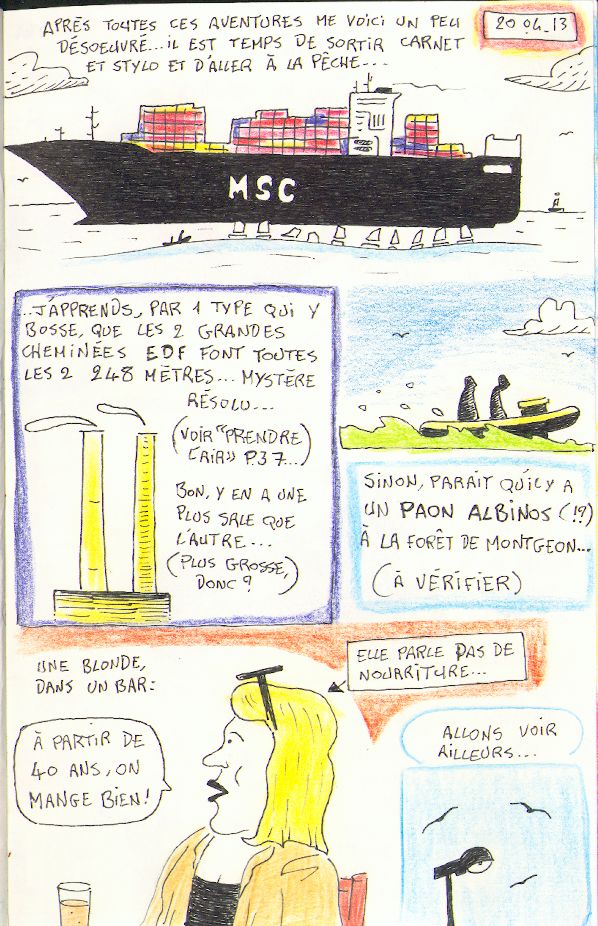 APRÈS TOUTES CES AVENTURES ME VOICI UN PEU
DÉSOEUVRÉ... IL EST TEMPS DE SORTIR CARNET
ET STYLO ET D'ALLER À LA PÊCHE...
20.04.13
MSC
...J'APPRENDS, PAR 1 TYPE QUI Y
BOSSE, QUE LES 2 GRANDES
CHEMINÉES EDF FONT TOUTES
LES 2 248 MÈTRES... MYSTÈRE
RÉSOLU...
(VOIR "PRENDRE
L'AIR" P.37...)
BON, Y EN A UNE
PLUS SALE QUE
L'AUTRE...
(PLUS GROSSE,
DONC ?)
SINON, PARAIT QU'IL Y A
UN PAON ALBINOS (!?)
À LA FORÊT DE MONTGEON...
(À VÉRIFIER)
UNE BLONDE,
DANS UN BAR:
À PARTIR DE
40 ANS, ON
MANGE BIEN!
ELLE PARLE PAS DE
NOURRITURE...
ALLONS VOIR
AILLEURS...